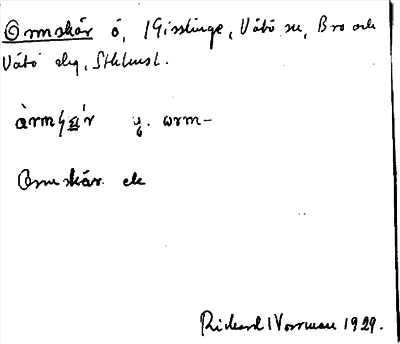 Ormskär ö, Gisslinge, Vätö sn, Bro och
Vätö slg, Sthlmsl.
àrmʃä́r y. orm-
Ormskär ek
Rickard Norrman 1929.